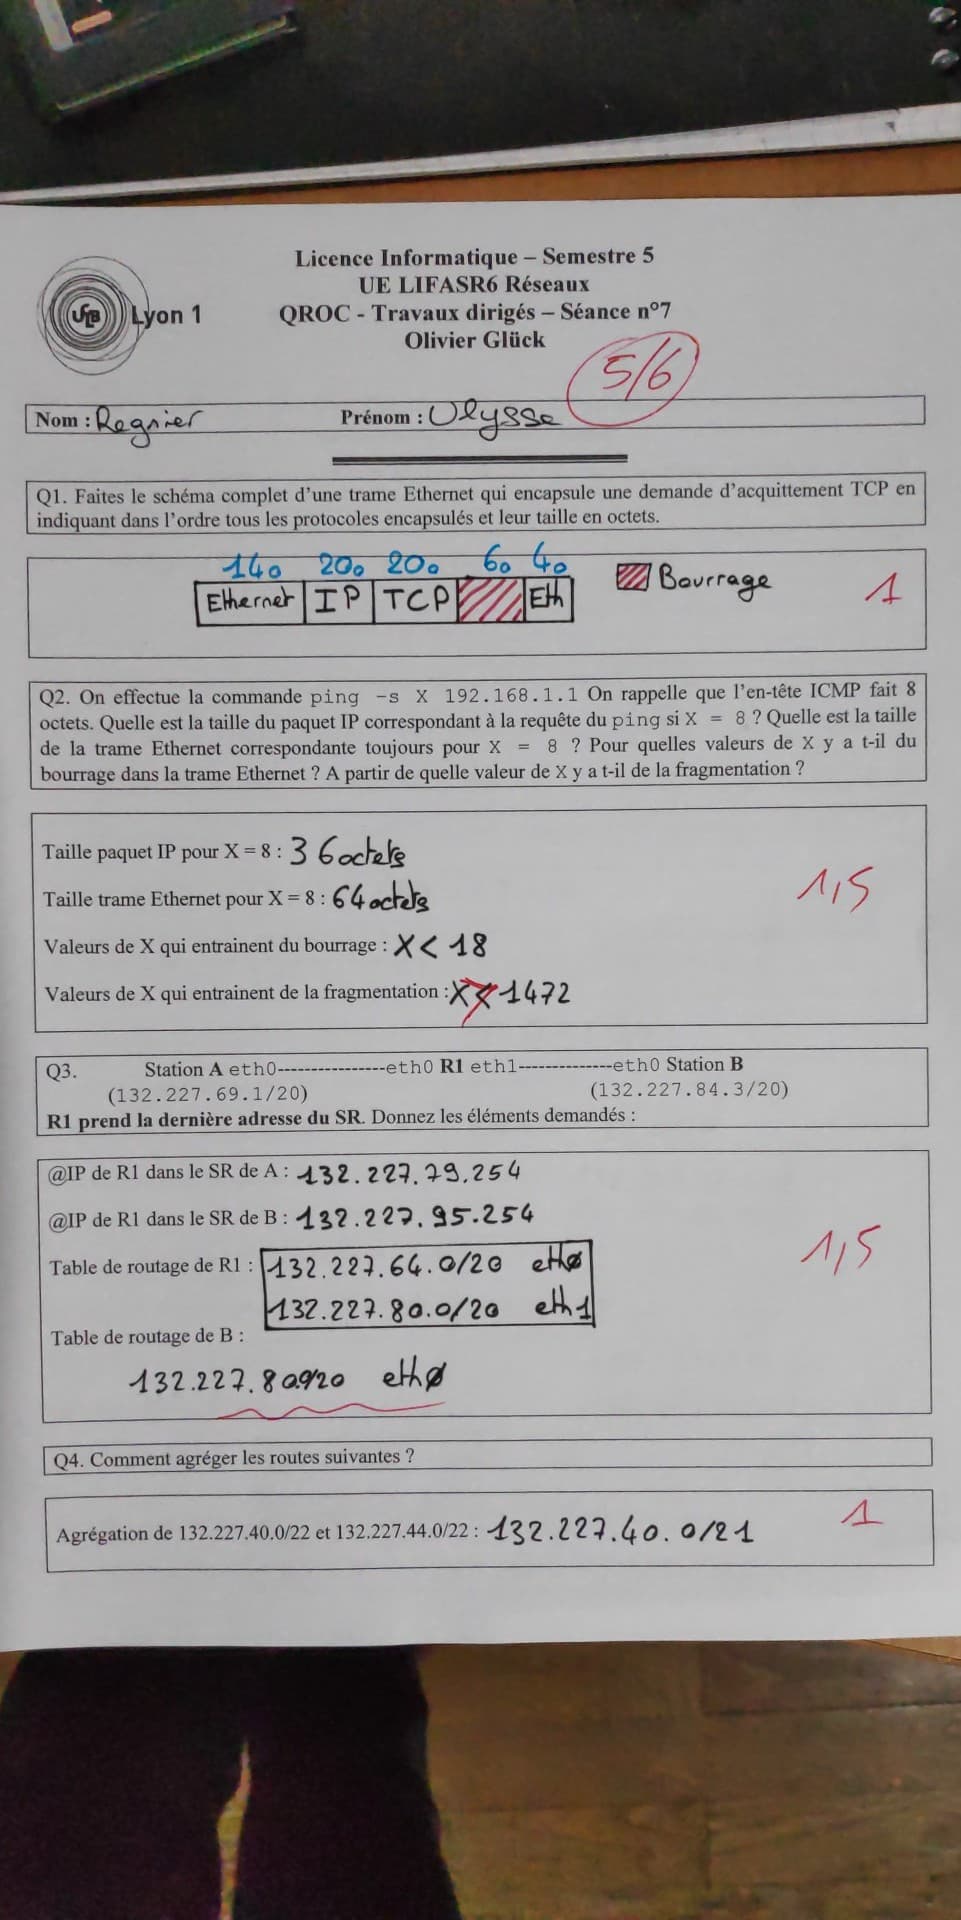 Licence Informatique – Semestre 5
UE LIFASR6 Réseaux
QROC - Travaux dirigés – Séance n°7
Olivier Glück
UCB Lyon 1
5/6
Nom : Regnier Prénom : Ulysse
Q1. Faites le schéma complet d'une trame Ethernet qui encapsule une demande d'acquittement TCP en
indiquant dans l'ordre tous les protocoles encapsulés et leur taille en octets.
14o 20o 20o 6o 4o
Ethernet IP TCP Eth Bourrage 1
Q2. On effectue la commande ping -s X 192.168.1.1 On rappelle que l'en-tête ICMP fait 8
octets. Quelle est la taille du paquet IP correspondant à la requête du ping si X = 8 ? Quelle est la taille
de la trame Ethernet correspondante toujours pour X = 8 ? Pour quelles valeurs de X y a t-il du
bourrage dans la trame Ethernet ? A partir de quelle valeur de X y a t-il de la fragmentation ?
Taille paquet IP pour X = 8 : 36 octets
Taille trame Ethernet pour X = 8 : 64 octets
1,5
Valeurs de X qui entrainent du bourrage : X < 18
Valeurs de X qui entrainent de la fragmentation : X > 1472
Q3. Station A eth0----------------eth0 R1 eth1--------------eth0 Station B
(132.227.69.1/20) (132.227.84.3/20)
R1 prend la dernière adresse du SR. Donnez les éléments demandés :
@IP de R1 dans le SR de A : 132.227.79.254
@IP de R1 dans le SR de B : 132.227.95.254
1,5
Table de routage de R1 : 132.227.64.0/20 eth0
132.227.80.0/20 eth1
Table de routage de B :
132.227.80.0/20 eth0
Q4. Comment agréger les routes suivantes ?
Agrégation de 132.227.40.0/22 et 132.227.44.0/22 : 132.227.40.0/21 1